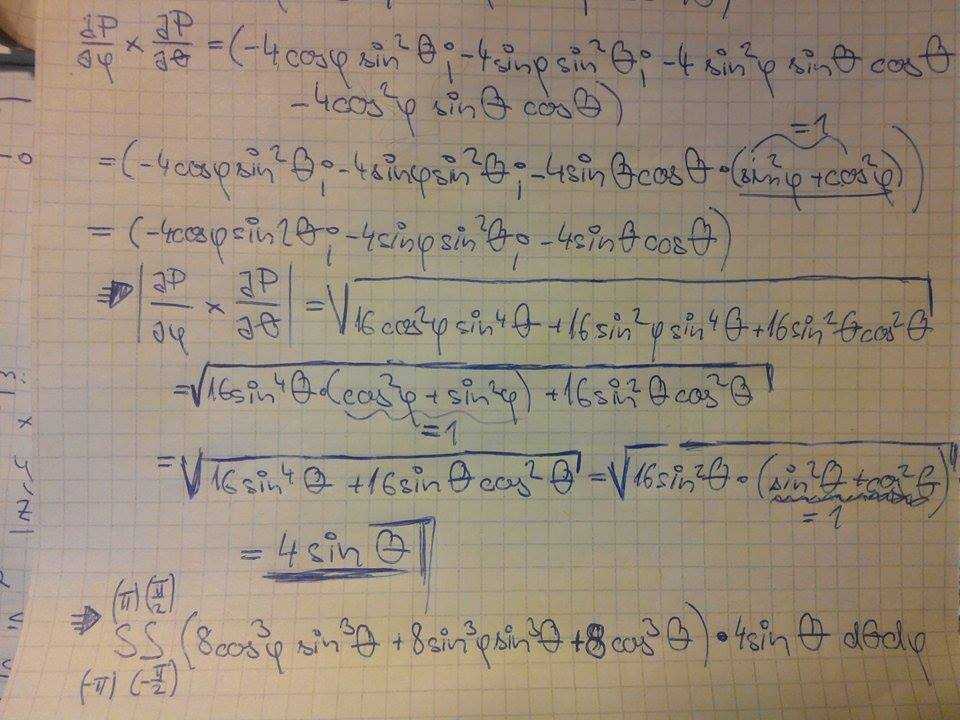 ∂P/∂φ × ∂P/∂θ = (-4 cosφ sin²θ; -4sinφ sin²θ; -4 sin²φ sinθ cosθ
-4cos²φ sinθ cosθ)
=1
= (-4cosφ sin²θ; -4sinφ sin²θ; -4sinθ cosθ · (sin²φ + cos²φ))
= (-4cosφ sin2θ; -4sinφ sin²θ; -4sinθ cosθ)
⇒ |∂P/∂φ × ∂P/∂θ| = √(16cos²φ sin⁴θ + 16sin²φ sin⁴θ + 16sin²θ cos²θ)
= √(16sin⁴θ · (cos²φ + sin²φ) + 16sin²θ cos²θ)
=1
= √(16sin⁴θ + 16sinθ cos²θ) = √(16sin²θ · (sin²θ + cos²θ))
= 1
= 4 sin θ
(π) (π/2)
⇒ SS (8cos³φ sin³θ + 8sin³φ sin³θ + 8cos³θ) · 4sinθ dθdφ
(-π) (-π/2)